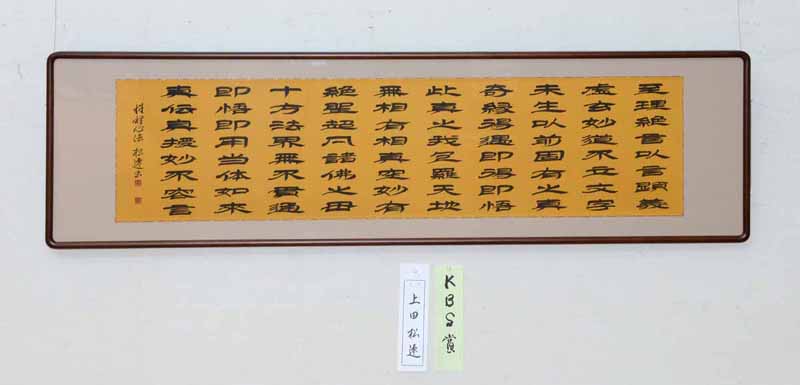 至理絶言以言顕義
虚玄妙道不立文字
未生以前固有之真
奇縁得遇即得即悟
此真之我包羅天地
無相有相真空妙有
絶聖超凡諸佛之母
十方法界無不貫通
即悟即用当体如来
真伝真授妙不容言
心法 松
KBS賞
上田松